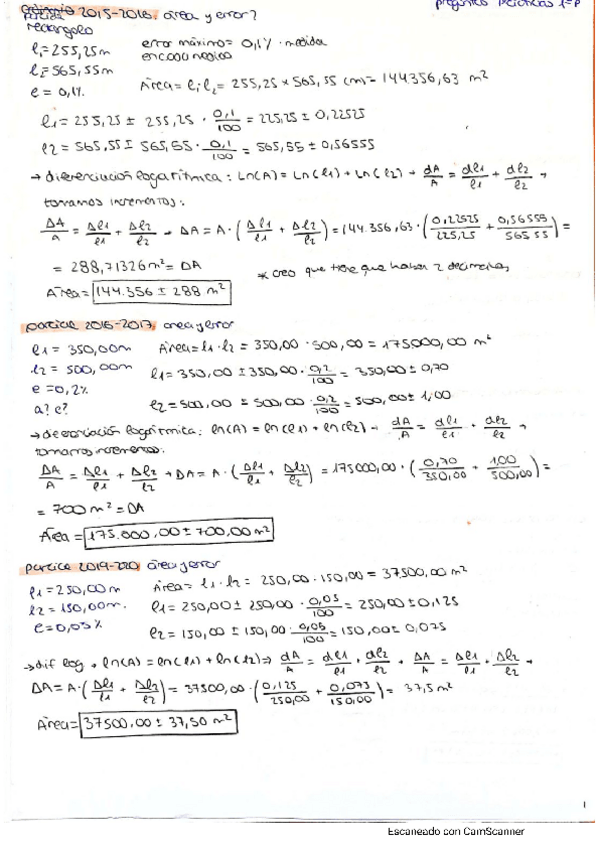 parcial 2015-2016. área y error?
preguntas prácticas 1ºP
rectángulo
l₁ = 255,25 m
error máximo = 0,1% · medida
l₂ = 565,55 m
e = 0,1%
Área = l₁·l₂ = 255,25 × 565,55 (m) = 144.356,63 m²
l1 = 255,25 ± 255,25 · 0,1/100 = 225,25 ± 0,22525
l2 = 565,55 ± 565,55 · 0,1/100 = 565,55 ± 0,56555
→ diferenciación logarítmica: Ln(A) = Ln(l1) + Ln(l2) → dA/A = dl1/l1 + dl2/l2 →
tomamos incrementos:
ΔA/A = Δl1/l1 + Δl2/l2 → ΔA = A · (Δl1/l1 + Δl2/l2) = 144.356,63 · (0,22525/225,25 + 0,56555/565,55) =
= 288,71326 m² = ΔA
* creo que tiene que haber 2 decimales
Área = 144.356 ± 288 m²
parcial 2016-2017. area y error
l1 = 350,00m
Área = l1 · l2 = 350,00 · 500,00 = 175000,00 m²
l2 = 500,00m
l1 = 350,00 ± 350,00 · 0,2/100 = 350,00 ± 0,70
e = 0,2%
a? e?
l2 = 500,00 ± 500,00 · 0,2/100 = 500,00 ± 1,00
logarítmica: ln(A) = ln(l1) + ln(l2) → dA/A = dl1/l1 · dl2/l2 →
tomamos incrementos:
ΔA/A = Δl1/l1 + Δl2/l2 → ΔA = A · (Δl1/l1 + Δl2/l2) = 175000,00 · (0,70/350,00 + 1,00/500,00) =
= 700 m² = ΔA
Área = 175.000,00 ± 700,00 m²
parcial 2019-220. área y error
l1 = 250,00 m
Área = l1 · l2 = 250,00 · 150,00 = 37500,00 m²
l2 = 150,00m.
l1 = 250,00 ± 250,00 · 0,05/100 = 250,00 ± 0,125
e = 0,05%
l2 = 150,00 ± 150,00 · 0,05/100 = 150,00 ± 0,075
→ dif log → ln(A) = ln(l1) + ln(l2) ⇒ dA/A = dl1/l1 · dl2/l2 → ΔA/A = Δl1/l1 · Δl2/l2 →
ΔA = A · (Δl1/l1 + Δl2/l2) = 37500,00 · (0,125/250,00 + 0,075/150,00) = 37,5 m²
Área = 37500,00 ± 37,50 m²
1
Escaneado con CamScanner